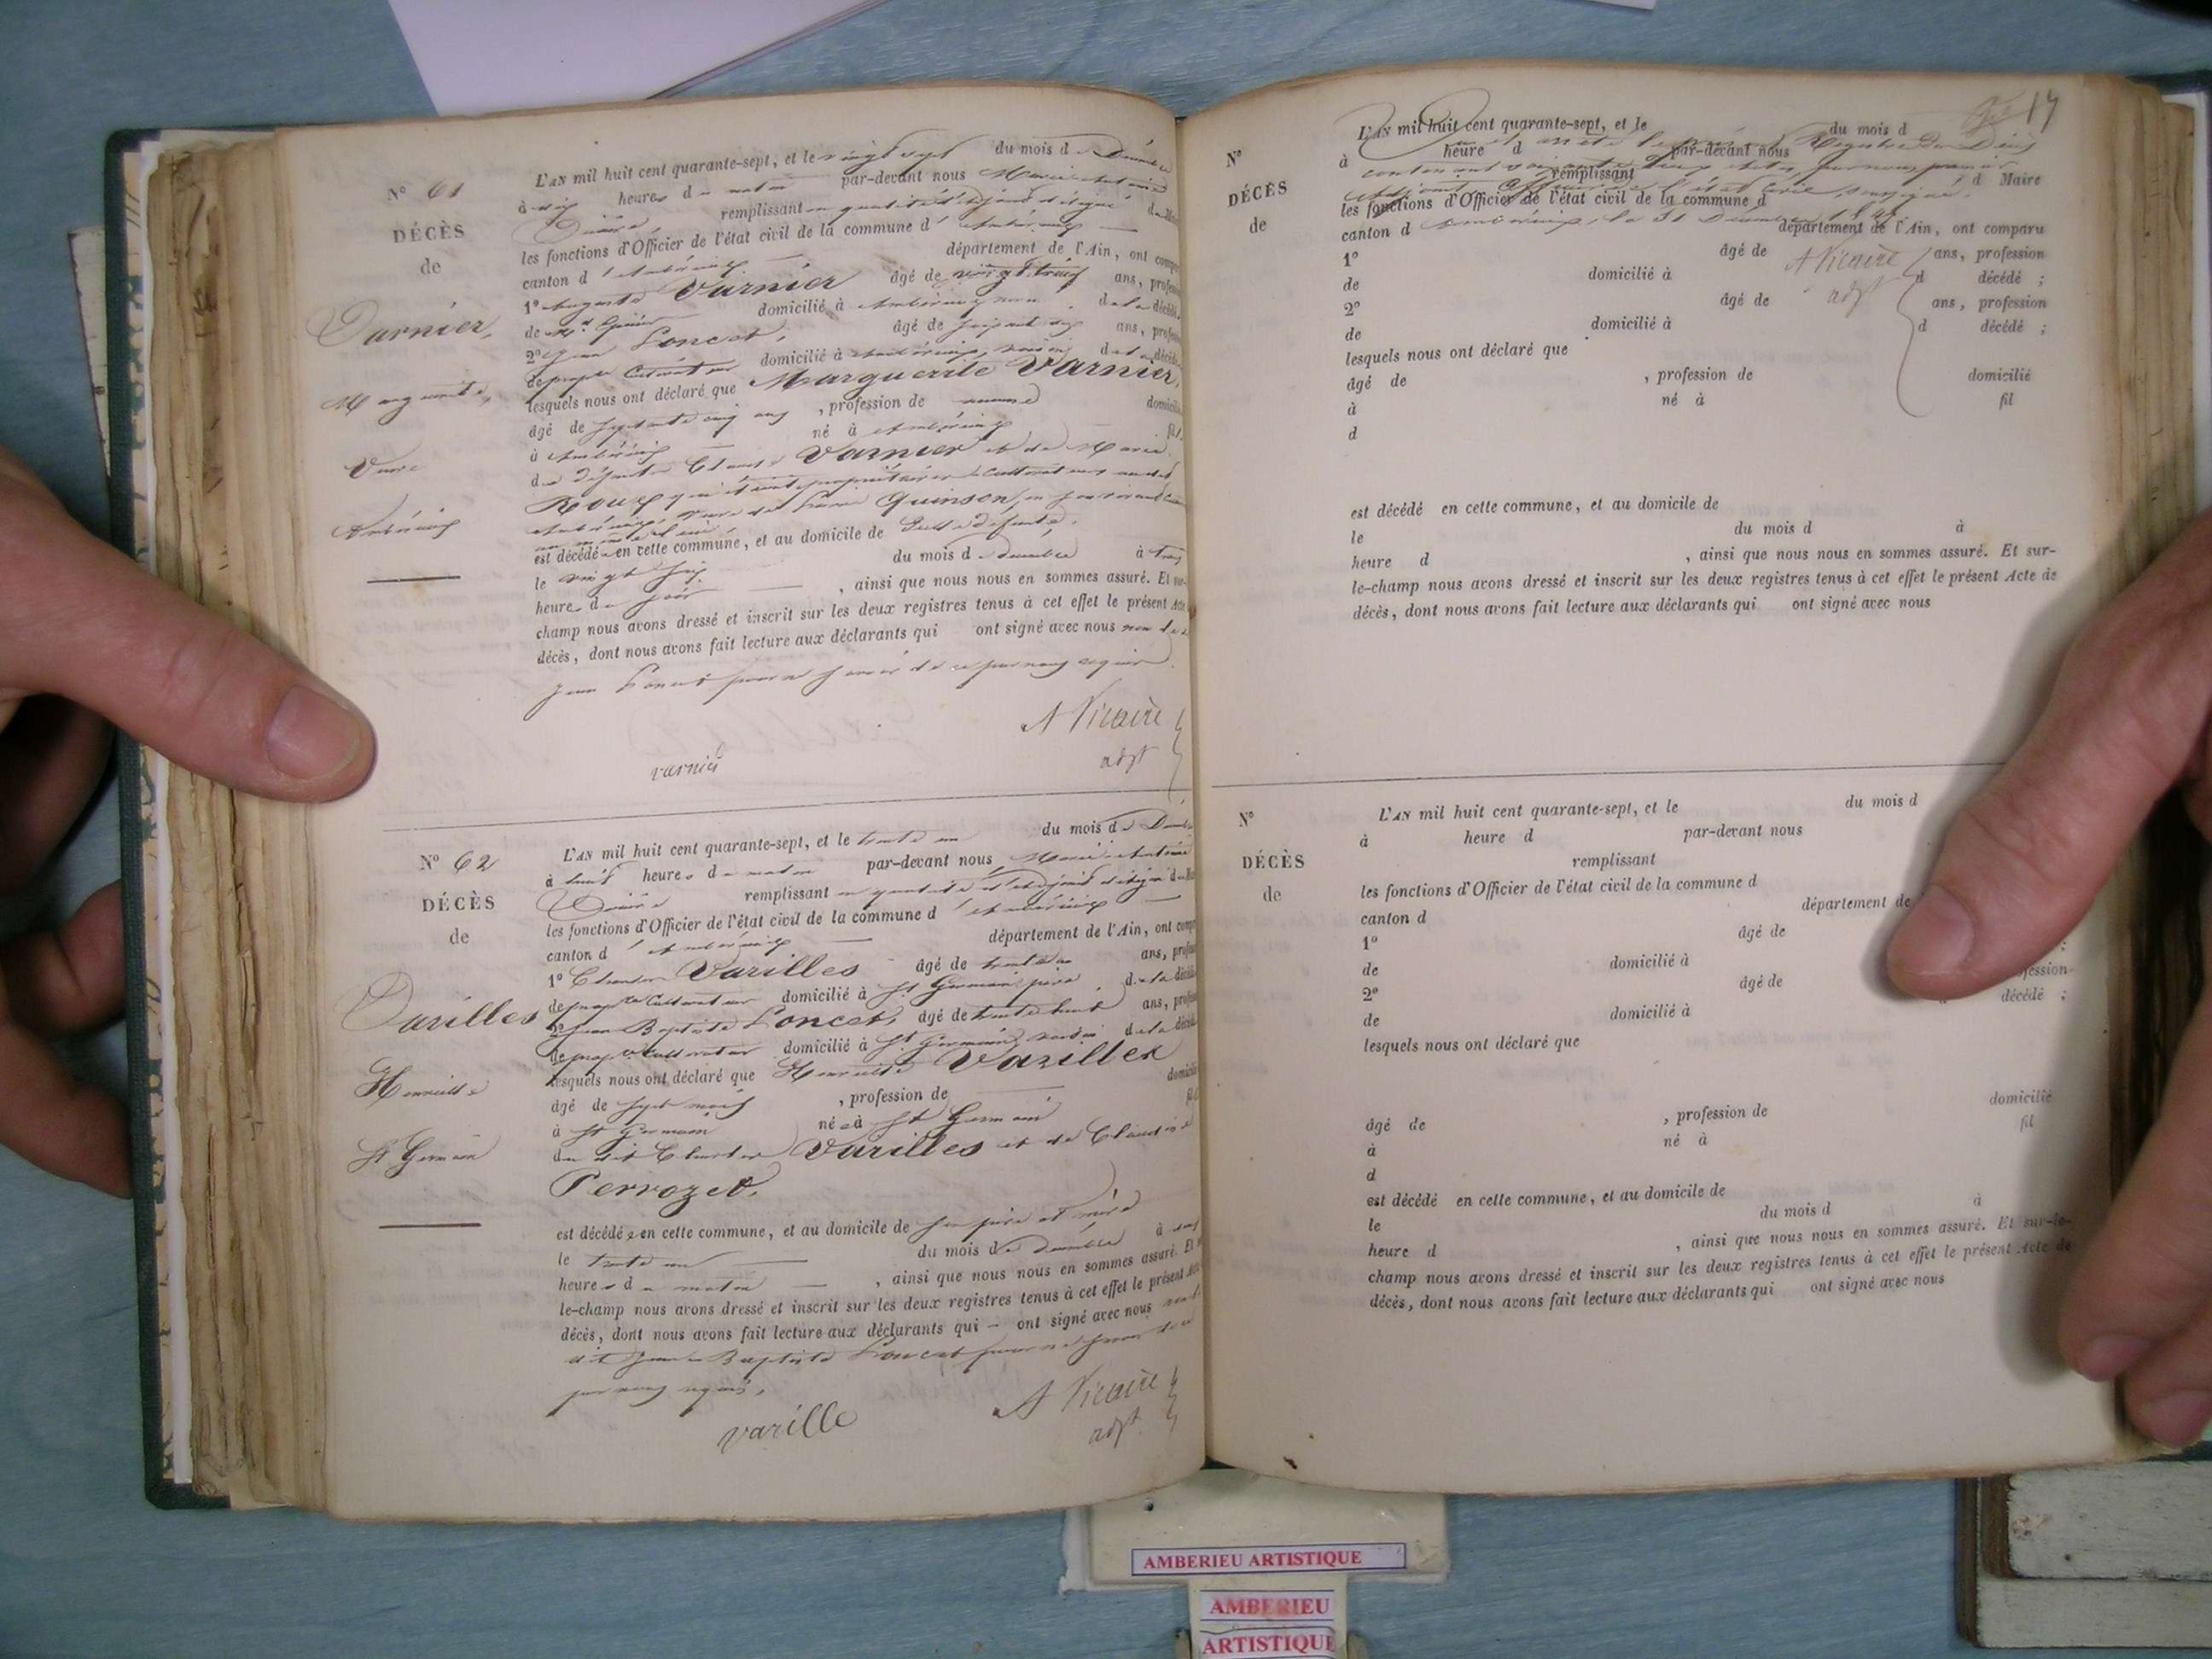 N° 61
DÉCÈS
de
Varnier,
Marguerite,
Veuve
Ambérieux
L'AN mil huit cent quarante-sept, et le vingt sept du mois de Décembre
à dix heures du matin par-devant nous Marie Antoine
remplissant en qualité d'adjoint délégué
les fonctions d'Officier de l'état civil de la commune d'Ambérieux
canton d'Ambérieux département de l'Ain, ont
1° Auguste Varnier âgé de vingt trois ans,
de domicilié à Ambérieux de la
2° Jean Poncet, âgé de ans,
de prop. Cultivateur domicilié à Ambérieux, voisin de la
lesquels nous ont déclaré que Marguerite Varnier,
âgé de septante cinq ans, profession de
à Ambérieux né à Ambérieux
de défunts Claude Varnier et de Marie
Roux qui étaient propriétaires cultivateurs
Ambérieux, veuve de Quinson,
est décédée en cette commune, et au domicile de la dite défunte,
le vingt six du mois de décembre à
heures du soir, ainsi que nous nous en sommes assuré. Et
champ nous avons dressé et inscrit sur les deux registres tenus à cet effet le présent
décès, dont nous avons fait lecture aux déclarants qui ont signé avec nous non
Jean Poncet pour ne savoir de ce par nous requis
A Vicaire
varnier adjt
N° 62
DÉCÈS
de
Varilles
Henriette
St Germain
L'AN mil huit cent quarante-sept, et le trente un du mois de
à huit heures du matin par-devant nous Marie Antoine
remplissant en qualité d'adjoint délégué
les fonctions d'Officier de l'état civil de la commune d'Ambérieux
canton d'Ambérieux département de l'Ain, ont
1° Varilles âgé de ans,
de prop. Cultivateur domicilié à St Germain, père, de la
2° Jean Baptiste Poncet, âgé de trente huit ans,
de prop. Cultivateur domicilié à St Germain, voisin de la
lesquels nous ont déclaré que Henriette Varilles
âgé de sept mois, profession de
à St Germain née à St Germain
du dit Varilles et de Claudine
Perrozet.
est décédée en cette commune, et au domicile de ses père et mère
le trente un du mois de décembre à
heures du matin, ainsi que nous nous en sommes assuré. Et
le-champ nous avons dressé et inscrit sur les deux registres tenus à cet effet le présent
décès, dont nous avons fait lecture aux déclarants qui ont signé avec nous
dit Jean Baptiste Poncet pour ne savoir de ce
par nous requis,
A Vicaire
varille adjt
17
N°
DÉCÈS
de
L'AN mil huit cent quarante-sept, et le du mois d
à heure d par-devant nous
remplissant
d Maire
les fonctions d'Officier de l'état civil de la commune d
canton d département de l'Ain, ont comparu
clos et arrêté le présent Registre des Décès
contenant soixante deux actes, par nous premier
adjoint officier de l'état civil soussigné.
Ambérieux, le 31 Décembre 1847.
A Vicaire
adjt
1° âgé de ans, profession
de domicilié à d décédé ;
2° âgé de ans, profession
de domicilié à d décédé ;
lesquels nous ont déclaré que
âgé de , profession de domicilié
à né à fil
d
est décédé en cette commune, et au domicile de
le du mois d à
heure d , ainsi que nous nous en sommes assuré. Et sur-
le-champ nous avons dressé et inscrit sur les deux registres tenus à cet effet le présent Acte de
décès, dont nous avons fait lecture aux déclarants qui ont signé avec nous
N°
DÉCÈS
de
L'AN mil huit cent quarante-sept, et le du mois d
à heure d par-devant nous
remplissant
les fonctions d'Officier de l'état civil de la commune d
canton d département de
1° âgé de
de domicilié à
2° âgé de
de domicilié à décédé ;
lesquels nous ont déclaré que
âgé de , profession de domicilié
à né à fil
d
est décédé en cette commune, et au domicile de
le du mois d à
heure d , ainsi que nous nous en sommes assuré. Et sur-le-
champ nous avons dressé et inscrit sur les deux registres tenus à cet effet le présent Acte de
décès, dont nous avons fait lecture aux déclarants qui ont signé avec nous
AMBERIEU ARTISTIQUE
AMBERIEU
ARTISTIQUE